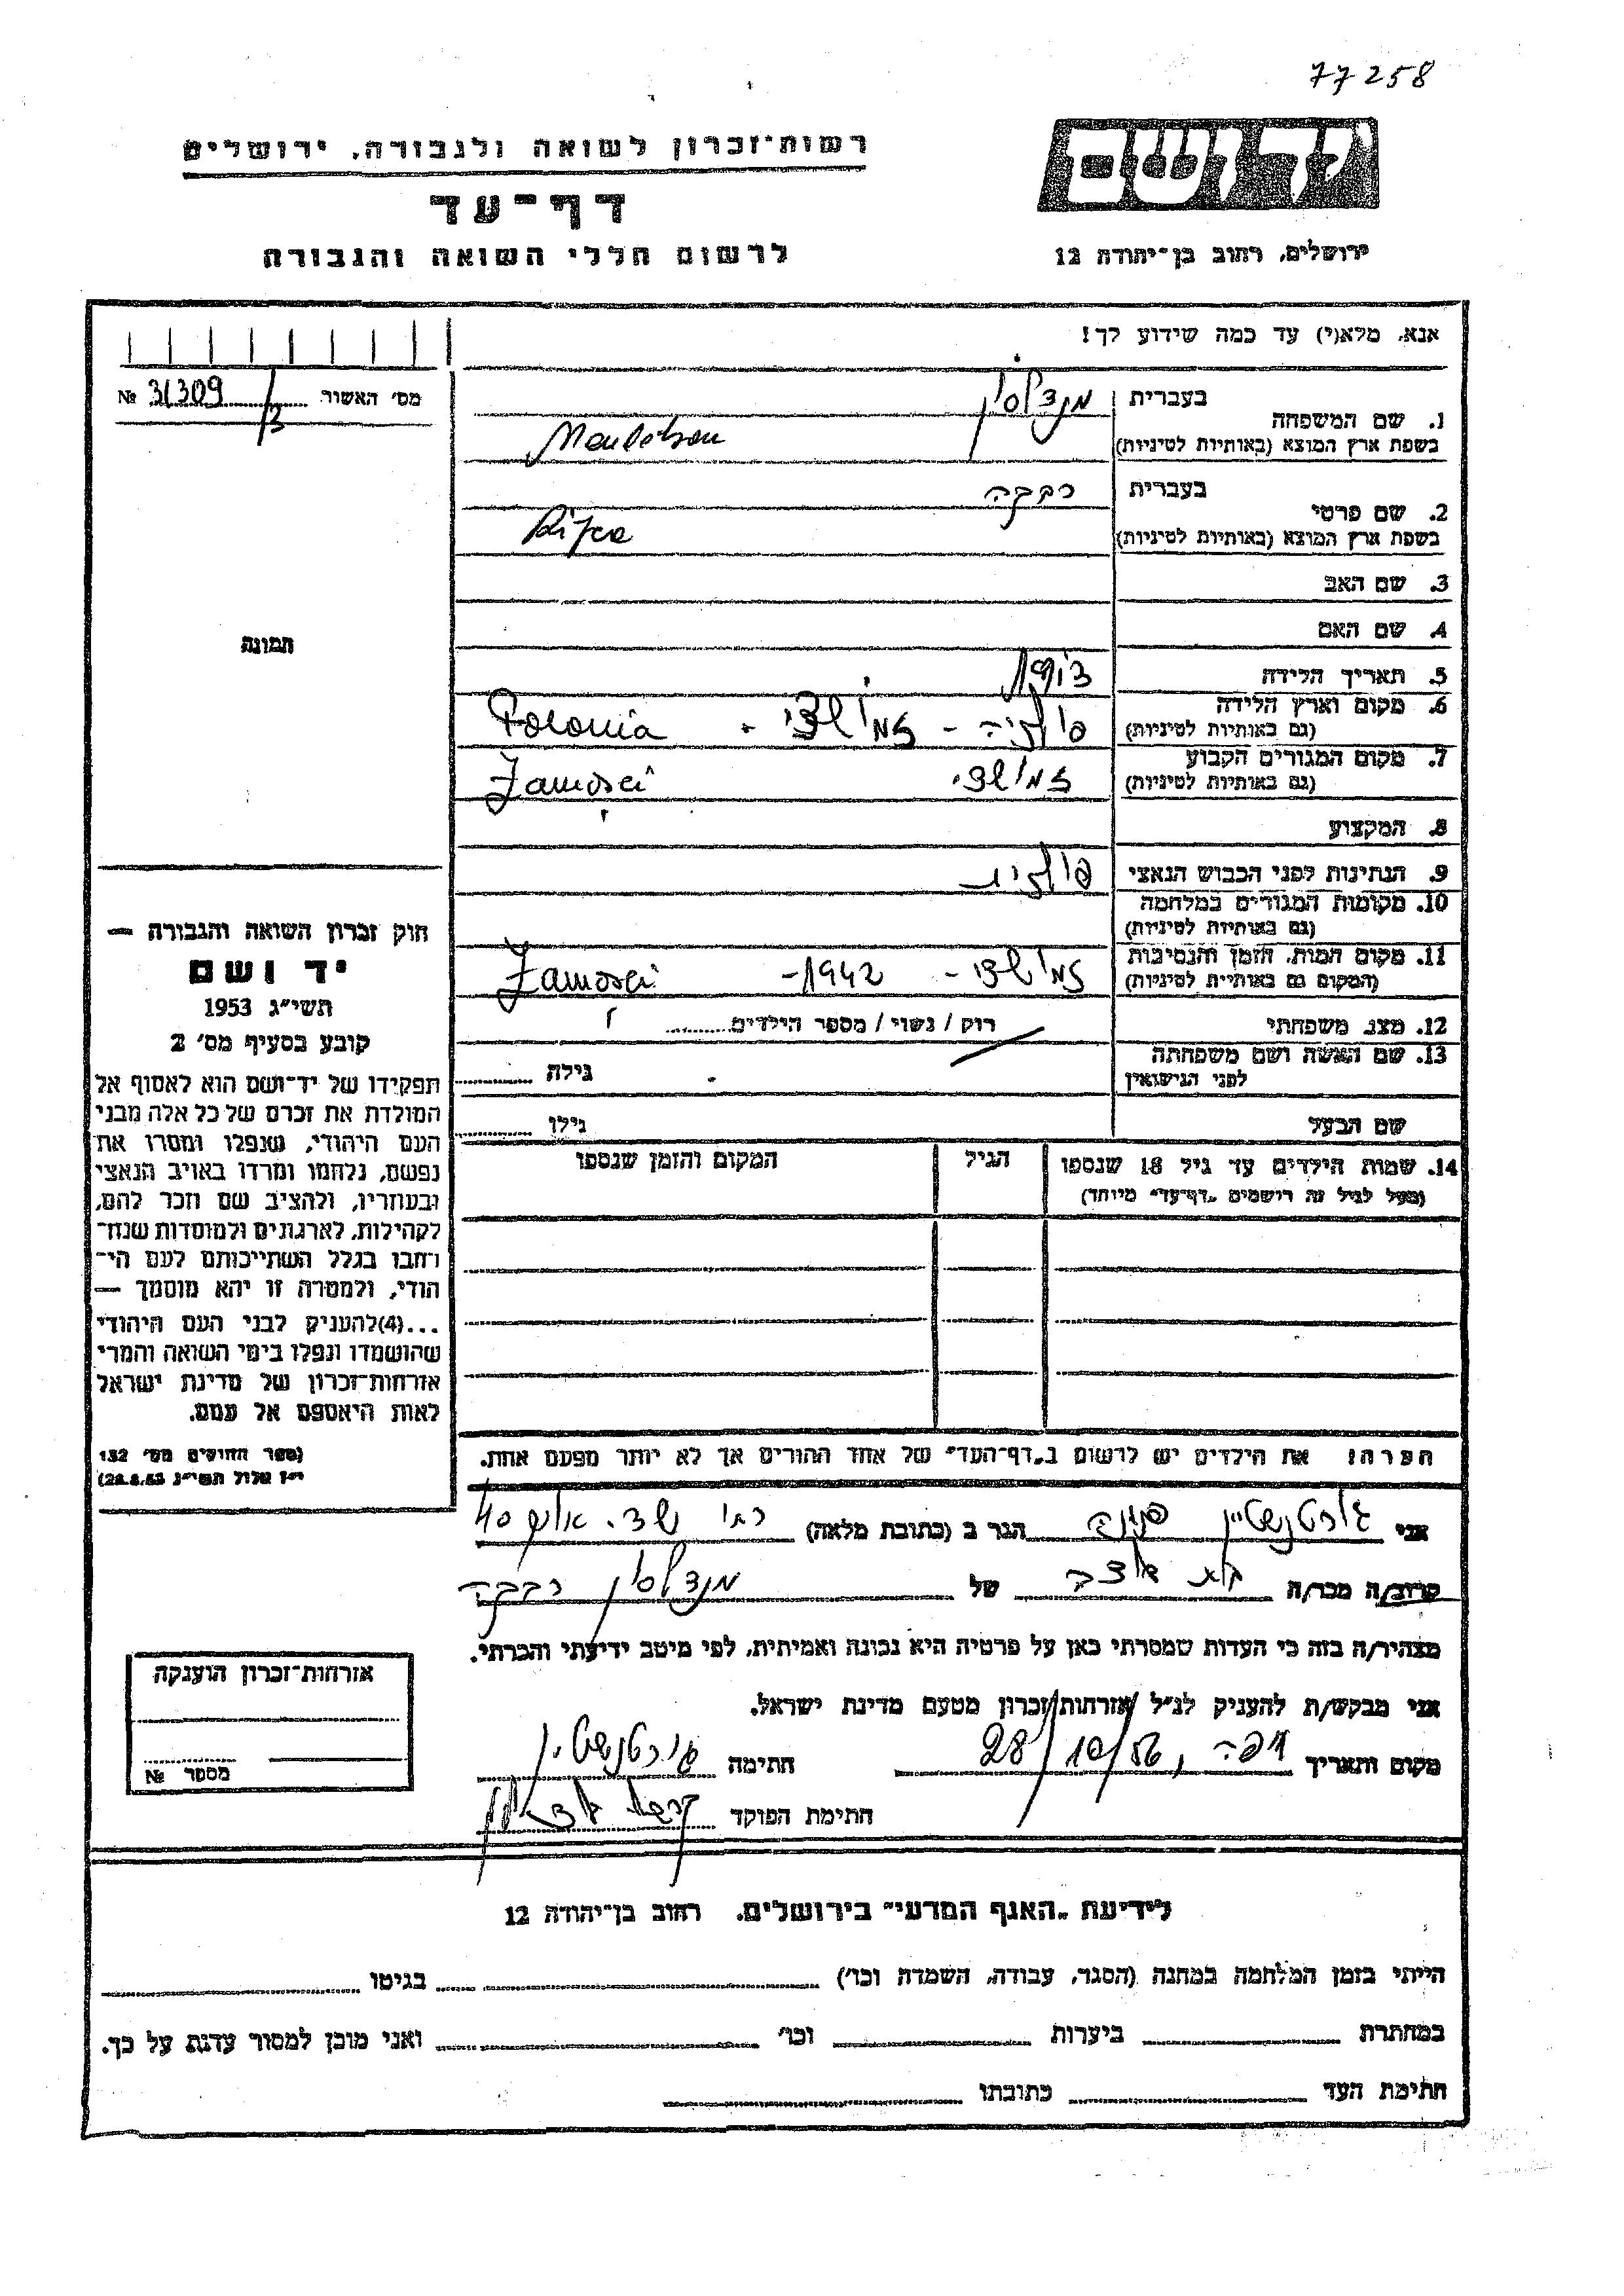 77258
רשות־זכרון לשואה ולגבורה, ירושלים
דף־עד
לרשום חללי השואה והגבורה
יד ושם
ירושלים, רחוב בן־יהודה 12
אנא, מלא(י) עד כמה שידוע לך!
מס׳ האשור № 31309/3
1. שם המשפחה בעברית מנדלסון
בשפת ארץ המוצא (באותיות לטיניות) Mendelson
2. שם פרטי בעברית רבקה
בשפת ארץ המוצא (באותיות לטיניות) Rifca
3. שם האב
4. שם האם
תמונה
5. תאריך הלידה
6. מקום וארץ הלידה (גם באותיות לטיניות) פולניה - זמושצי - Polonia
7. מקום המגורים הקבוע (גם באותיות לטיניות) זמושצי Zamosci
8. המקצוע
9. הנתינות לפני הכבוש הנאצי פולנית
10. מקומות המגורים במלחמה (גם באותיות לטיניות)
11. מקום המות, הזמן והנסיבות (המקום גם באותיות לטיניות) זמושצי - 1942 - Zamosci
12. מצב משפחתי רוק / נשוי / מספר הילדים
13. שם האשה ושם משפחתה לפני הנישואין גילה
שם הבעל גילו
14. שמות הילדים עד גיל 18 שנספו הגיל המקום והזמן שנספו
(מעל לגיל זה רושמים „דף־עד״ מיוחד)
חוק זכרון השואה והגבורה —
יד ושם
תשי״ג 1953
קובע בסעיף מס׳ 2
תפקידו של יד־ושם הוא לאסוף אל
המולדת את זכרם של כל אלה מבני
העם היהודי, שנפלו ומסרו את
נפשם, נלחמו ומרדו באויב הנאצי
ובעוזריו, ולהציב שם וזכר להם,
לקהילות, לארגונים ולמוסדות שנח־
רבו בגלל השתייכותם לעם הי־
הודי, ולמטרה זו יהא מוסמך —
...(4)להעניק לבני העם היהודי
שהושמדו ונפלו בימי השואה והמרי
אזרחות־זכרון של מדינת ישראל
לאות היאספם אל עמם.
(ספר החוקים מס׳ 132
י״ז אלול תשי״ג 28.8.53)
הערה: את הילדים יש לרשום ב„דף־העד״ של אחד ההורים אך לא יותר מפעם אחת.
אני גורטנשטיין הגר ב (כתובת מלאה) 40
קרוב/ה מכר/ה של מנדלסון רבקה
מצהיר/ה בזה כי העדות שמסרתי כאן על פרטיה היא נכונה ואמיתית, לפי מיטב ידיעתי והכרתי.
אני מבקש/ת להעניק לנ״ל אזרחות/זכרון מטעם מדינת ישראל.
מקום ותאריך חיפה, 28/10/56 חתימה גורטנשטיין
חתימת הפוקד
אזרחות־זכרון הוענקה
מספר №
לידיעת „האגף המדעי״ בירושלים, רחוב בן־יהודה 12
הייתי בזמן המלחמה במחנה (הסגר, עבודה, השמדה וכו׳) בגיטו
במחתרת ביערות וכו׳ ואני מוכן למסור עדות על כך.
חתימת העד כתובתו